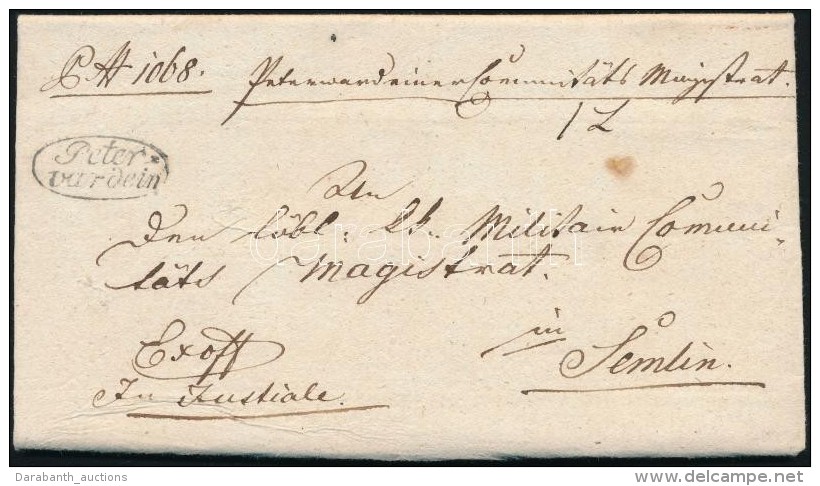 1068. Peterwardeiner Communitäts Magistrat.
1 L
Peter-
vardein
An
Den löbl: k. k. Militair Communi-
täts Magistrat.
in
Exoff
Semlin.
In Justiale.
darabanth
Darabanth_auctions
delcampe.net